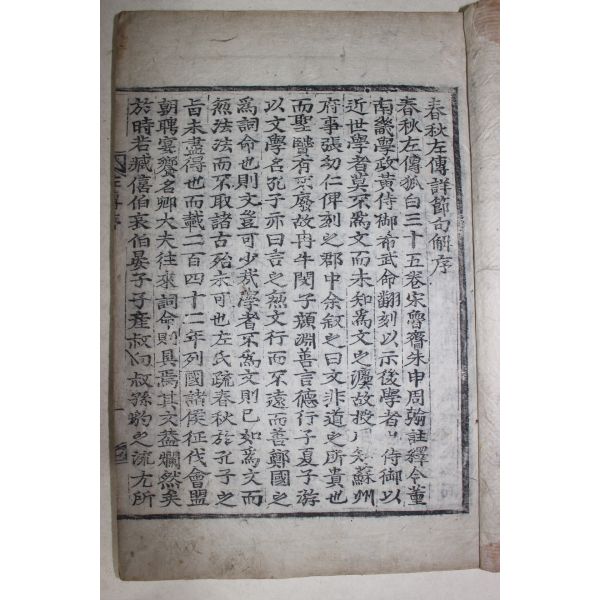 春秋左傳詳節句解序
春秋左傳狐白三十五卷宋魯齋朱申周翰註釋今董
南畿學政黃侍御希武命翻刻以示後學者侍御以
近世學者莫不爲文而未知爲文之瀆故授蘇州
府事張幼仁俾刻之郡中余敘之曰文非道之所貴也
而聖賢有不廢故冉牛閔子顔淵善言德行子夏子游
以文學名孔子亦曰言之無文行而不遠而善鄭國之
爲詞命也則文豈可少哉學者不爲文則已如爲文而
無法法而不取諸古殆未可也左氏疏春秋於孔子之
旨未盡得也而載二百四十二年列國諸侯征伐會盟
朝聘宴饗名卿大夫往來詞命則具焉其文葢爛然矣
於時若臧僖伯哀伯晏子子產叔向叔孫豹之流尤所